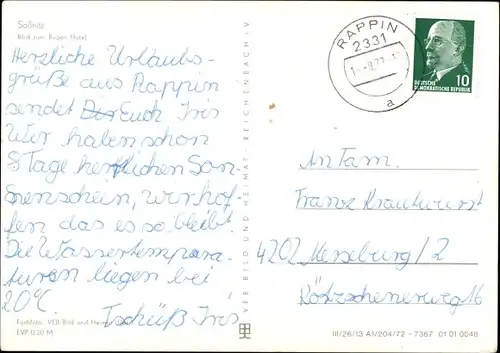 Saßnitz
Blick zum Rügen Hotel
Herzliche Urlaubs-
grüße aus Rappin
sendet Euch Iris
Wir haben schon
8 Tage herrlichen Son-
nenschein, wir hof-
fen das es so bleibt.
Die Wassertempera-
turen liegen bei
20°C.
Tschüß Iris
VEB Bild und
EVP 0,20 M
VEB BILD UND HEIMAT · REICHENBACH i. V.
RAPPIN
2331
a
10
DEUTSCHE
DEMOKRATISCHE REPUBLIK
An Fam.
Franz Krautwurst
4202 Merseburg/2
Kötzschenerweg 16
III/26/13 A1/204/72 - 7367 01 01 0046